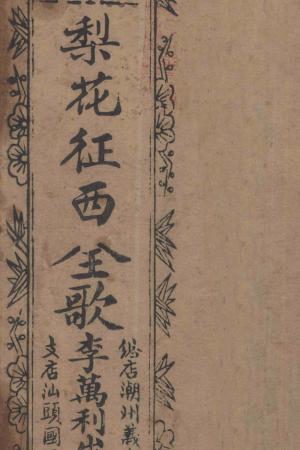 梨花征西全歌
李萬利
総店潮州義
支店汕頭國